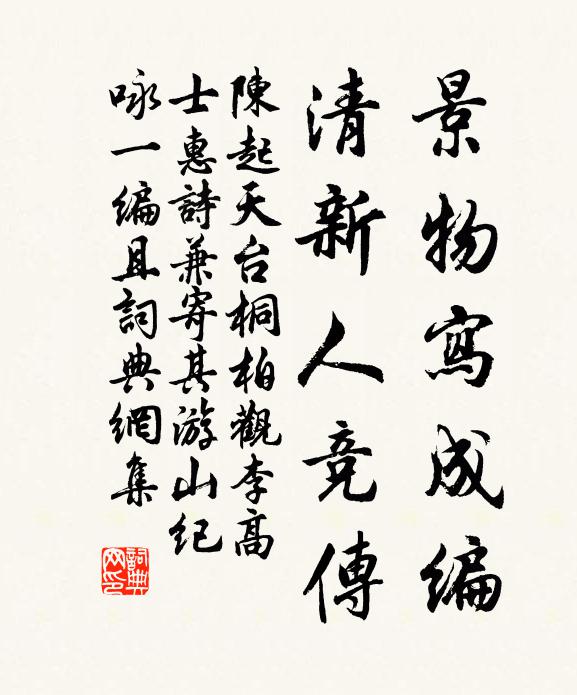 景物寫成编
清新人竞傳
陳起天台桐柏觀李高
士惠詩兼寄其游山纪
咏一编且詞典網集
詞典网印